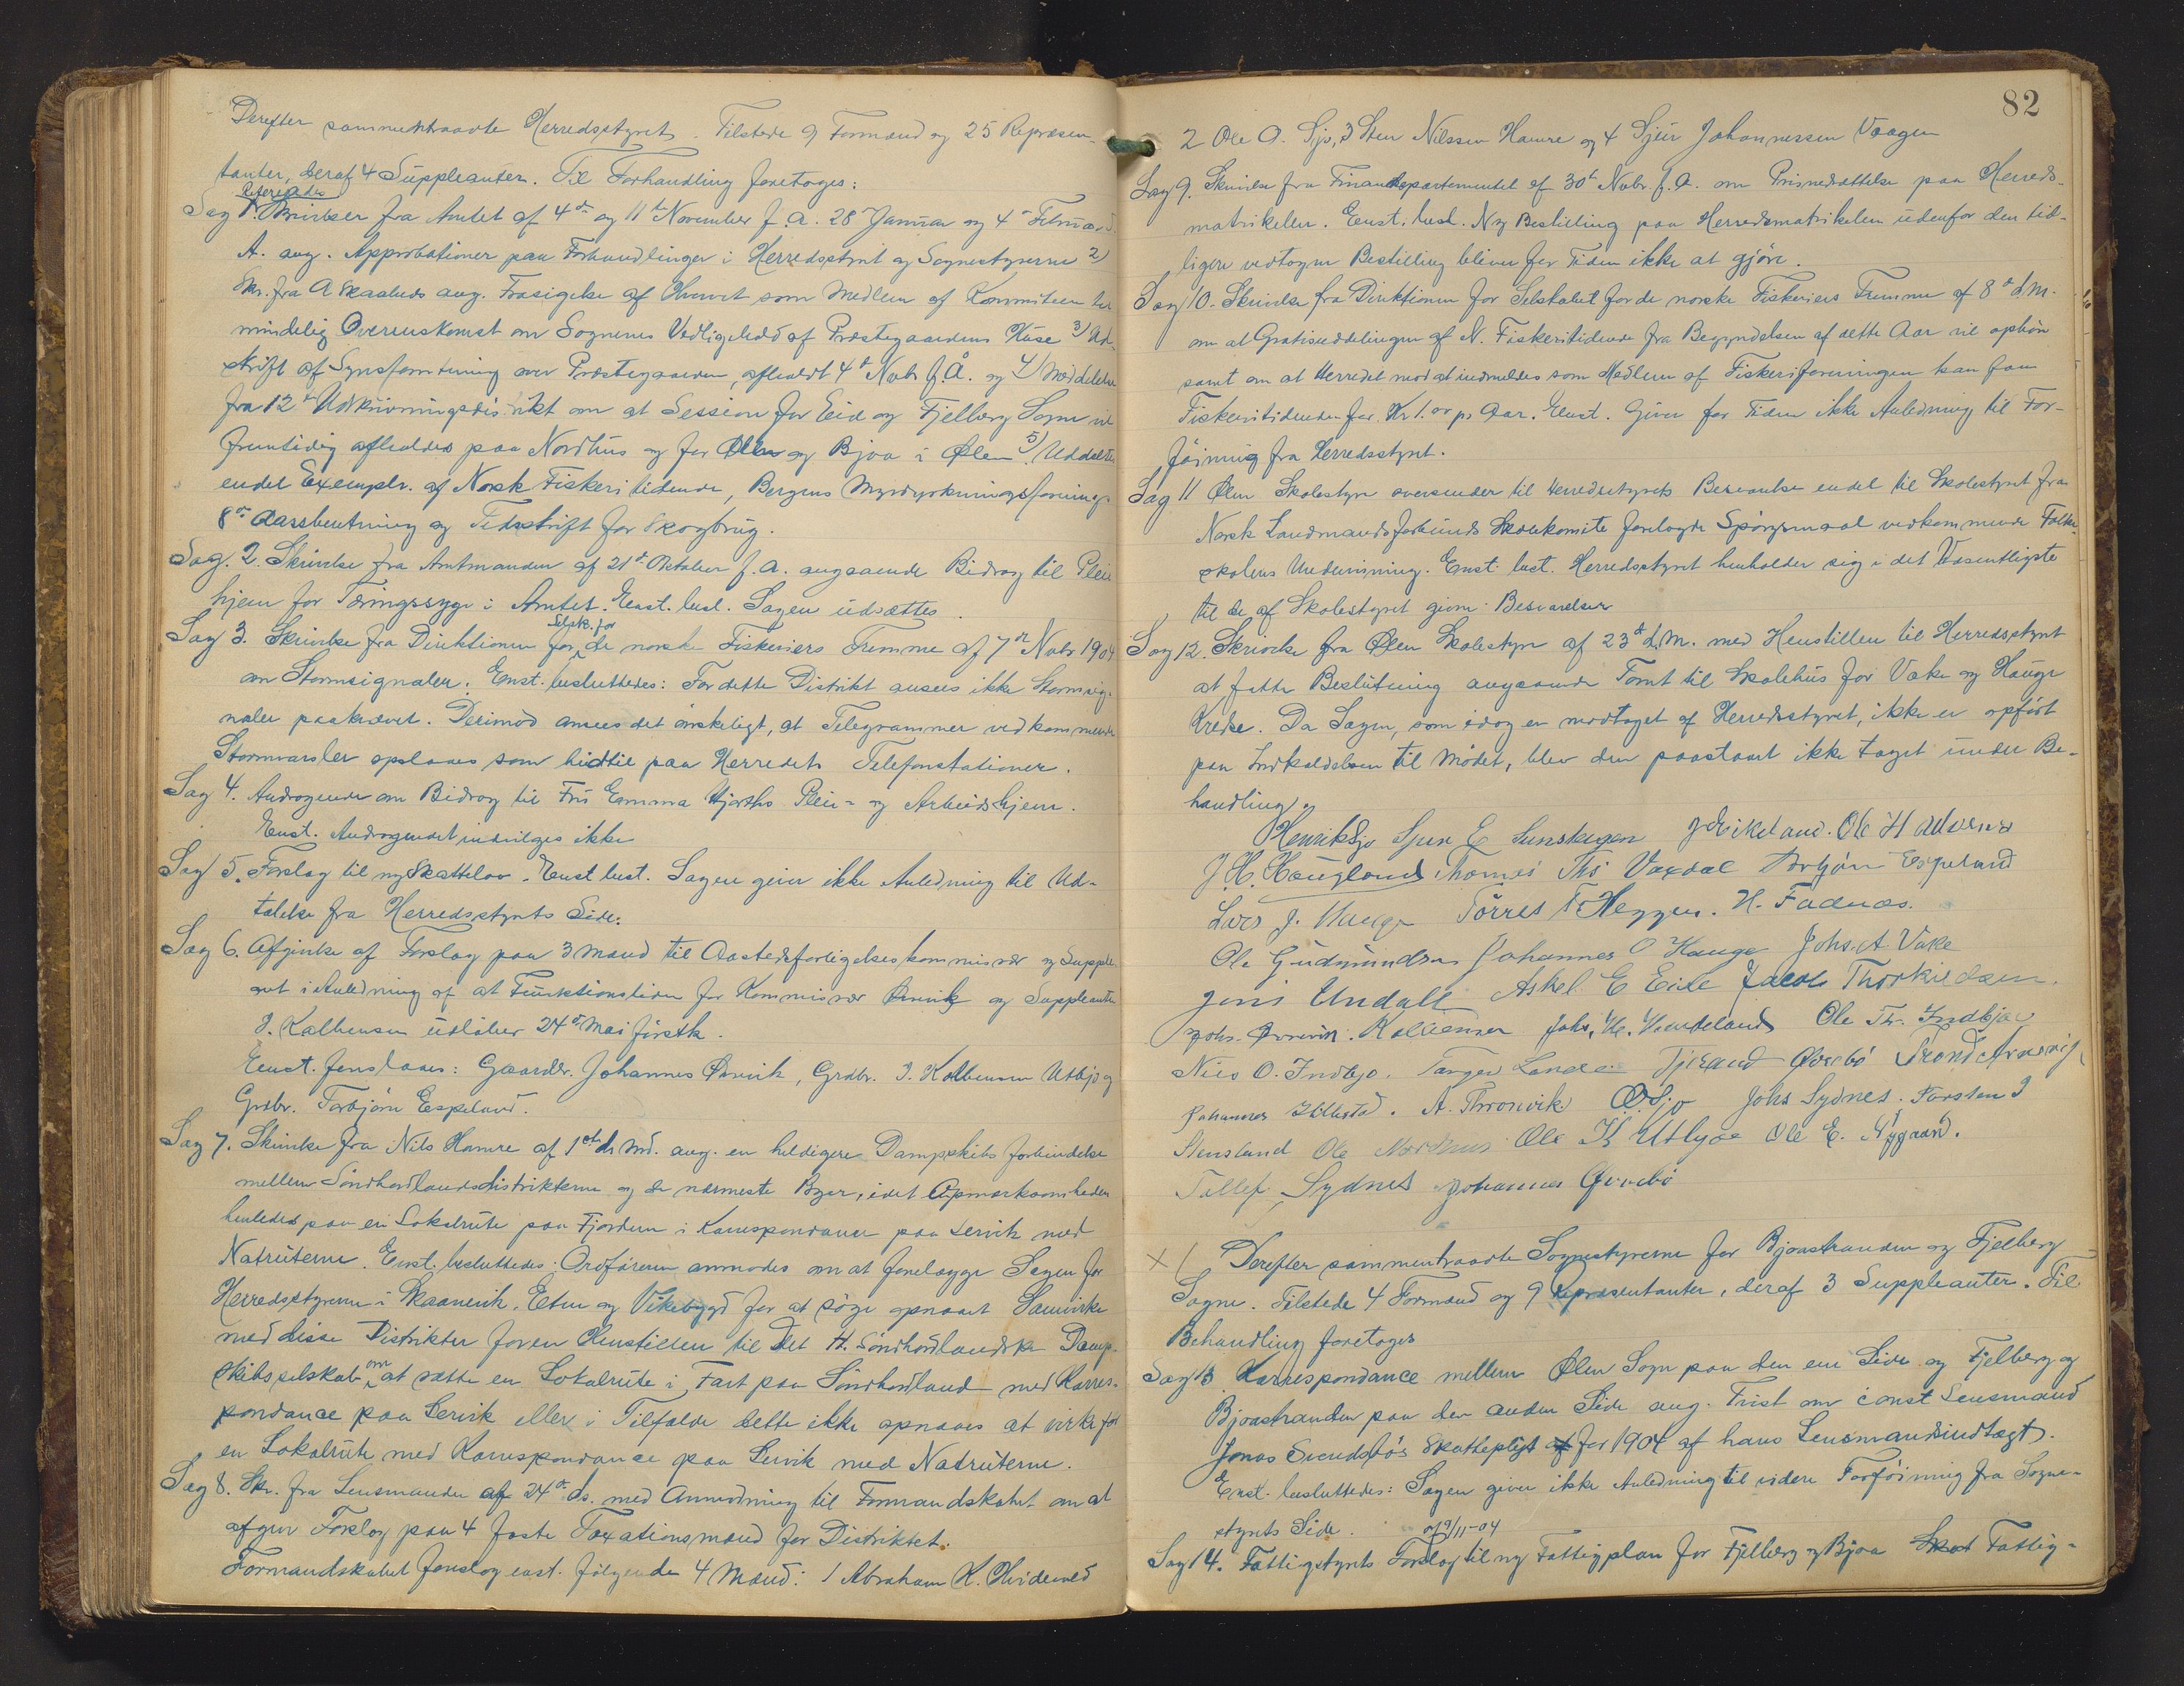 Derefter sammentraadte Herredsstyret. Tilstede 9 Formænd og 25 Repræsen-
tanter, deraf 4 Suppleanter. Til Forhandling foretoges:
Refereredes
Sag 1. Skrivelser fra Amtet af 4de og 11te November f. A. 28de Januar og 4de Februar d.
A. ang. Approbationer paa Forhandlinger i Herredsstyret og Sognestyrerne 2)
Skr. fra A Skaaluds ang. Frasigelse af Hvervet som Medlem af Kommiteen til
mindelig Overenskomst om Sognenes Vedligehold af Præstegaardens Huse 3) Ud-
skrift af Synsforretning over Præstegaarden, afholdt 4de Novbr f. Å. og 4) Meddelelse
fra 12te Udskrivningsdistrikt om at Session for Eid og Fjelberg Sogne vil
fremtidig afholdes paa Nordhus og for Ølen og Bjoa i Ølen 5) Uddeltes
endel Exemplr. af Norsk Fiskeritidende, Bergens Myrdyrkningsforenings
8de Aarsberetning og Tidsskrift for Skogbrug.
Sag. 2. Skrivelse fra Amtmanden af 21de Oktober f. A. angaaende Bidrag til Pleie
hjem for Tæringssyge i Amtet. Enst. besl. Sagen udsættes.
Selsk. for
Sag 3. Skrivelse fra Direktionen for de norske Fiskeriers Fremme af 7de Novbr 1904
om Stormsignaler. Enst. besluttedes: For dette Distrikt ansees ikke Stormsig-
naler paakrævet. Derimod ansees det ønskeligt, at Telegrammer vedkommende
Stormvarsler opslaaes som hidtil paa Herredets Telefonstationer.
Sag 4. Andragende om Bidrag til Fru Emma Hjorths Pleie- og Arbeidshjem.
Enst. Andragendet indvilges ikke
Sag 5. Forslag til ny Skattelov. Enst best. Sagen giver ikke Anledning til Ud-
talelse fra Herredsstyrets Side.
Sag 6. Afgivelse af Forslag paa 3 Mænd til Aastedsforligelseskommissær og Supple-
ant i Anledning af at Funktionstiden for Kommissær Ørevik og Suppleanten
I. Kalhensen udløber 24de Mai førstk.
Enst. foreslaaes: Gaardbr. Johannes Ørevik, Grdbr. I. Kolbensen Utbjo og
Grdbr. Torbjørn Espeland.
Sag 7. Skrivelse fra Nils Hamre af 1ste ds Md. ang. en heldigere Dampskibsforbindelse
mellem Søndhordlandsdistrikterne og de nærmeste Byer, idet Opmærksomheden
henledes paa en Lokalrute paa Fjordene i Korrespondance paa Lervik med
Natruterne. Enst. besluttedes: Ordføreren anmodes om at forelægge Sagen for
Herredsstyrerne i Skaanevik, Etne og Vikebygd for at søge opnaaet Samvirke
med disse Distrikter for en Henstillen til Det H. Søndhordlandske Damp-
skibsselskab om at sætte en Lokalrute i Fart paa Søndhordland med Korres-
pondance paa Lervik eller i Tilfælde dette ikke opnaaes at virke for
en Lokalrute med Korrespondance paa Lervik med Natruterne.
Sag 8. Skr. fra Lensmanden af 24de ds. med Anmodning til Formandskabet om at
afgive Forslag paa 4 faste Taxationsmænd for Distriktet.
Formandskabet foreslog enst. følgende 4 Mænd: 1 Abraham K. Hvidevold
82
2 Ole O. Sjo, 3 Sten Nilssen Hamre og 4 Sjur Johannessen Vaagen
Sag 9. Skrivelse fra Finansdepartementet af 30te Novbr. f. A. om Prisnedsættelse paa Herreds-
matrikelen. Enst. besl. Ny Bestilling paa Herredsmatrikelen udenfor den tid-
ligere vedtagne Bestilling bliver for Tiden ikke at gjøre.
Sag 10. Skrivelse fra Direktionen for Selskabet for de norske Fiskeriers Fremme af 8de d.M.
om at Gratisuddelingen af N. Fiskeritidende fra Begyndelsen af dette Aar vil ophøre
samt om at Herredet mod at indmeldes som Medlem af Fiskeriforeningen kan faa
Fiskeritidenden for Kr 1.00 pr. Aar. Enst. Giver for Tiden ikke Anledning til For-
føining fra Herredsstyret.
Sag 11 Ølen Skolestyre oversender til Herredsstyrets Besvarelse endel til Skolestyret fra
Norsk Landmandsforbunds Skolekomite forelagde Spørgsmaal vedkommende Folke-
skolens Undervisning. Enst. best. Herredsstyret henholder sig i det Væsentligste
til de af Skolestyret givne Besvarelser
Sag 12. Skrivelse fra Ølen Skolestyre af 23de d.M. med Henstillen til Herredsstyret
at fatte Beslutning angaaende Tomt til Skolehus for Vake og Hauge
Kredse. Da Sagen, som idag er modtaget af Herredsstyret, ikke er opført
paa Indkaldelsen til Mødet, blev den paastaaet ikke taget under Be-
handling.
Henrik Sjo Sjur E Sunskagen J. Eikeland. Ole H Alværn
J. H. Haugland Thomas Ths Vaxdal Torbjørn Espeland
Lars J. Hauge Tørres T. Heggen. H. Fadnæs.
Ole Gudmundsen Johannes O Hauge Johs. A Vake
Jens Undall Askel E Eide Jacob Thorkildsen.
Johs. Ørevik. Kolbensen Johs. H. Kvidtland Ole Th. Indbjo
Nils O. Indbjo. Tørger Landa Tjerand Øvrebø Trond Arnevig
Johannes Hillestad. A. Thronvik O. Sjo Johs Sydnes. Torsten I
Stensland Ole Nordhus Ole K Utbjoe Ole E. Nygaard.
Tollef Sydnes Johannes Øvrebø
x / Derefter sammentraadte Sognestyrerne for Bjoastranden og Fjelberg
Sogne. Tilstede 4 Formænd og 9 Repræsentanter, deraf 3 Suppleanter. Til
Behandling foretoges
Sag 13 Korrespondance mellem Ølen Sogn paa den ene Side og Fjelberg og
Bjoastranden paa den anden Side ang. Tvist om const Lensmand
Jonas Svendsbøs Skattepligt for 1904 af hans Lensmandsindtægt.
Enst. besluttedes: Sagen giver ikke Anledning til videre Forføining fra Sogne-
styrets Side.
af 9/11-04
Sag 14. Fattigstyrets Forslag til ny Fattigplan for Fjelberg og Bjoa Fattig-